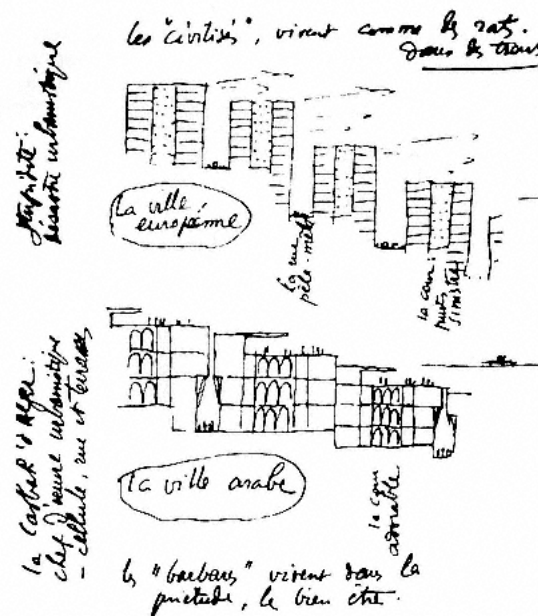 les "civilisés", vivent comme des rats.
dans des trous
stupidité:
désastre urbanistique
la ville
européenne
la rue
pêle-mêle
la cour:
puits
sinistre!
la Casbah d'Alger:
chef d'œuvre urbanistique
- cellule, rue et terrasses
la ville arabe
la cour
adorable
les "barbares" vivent dans la
quiétude, le bien être.